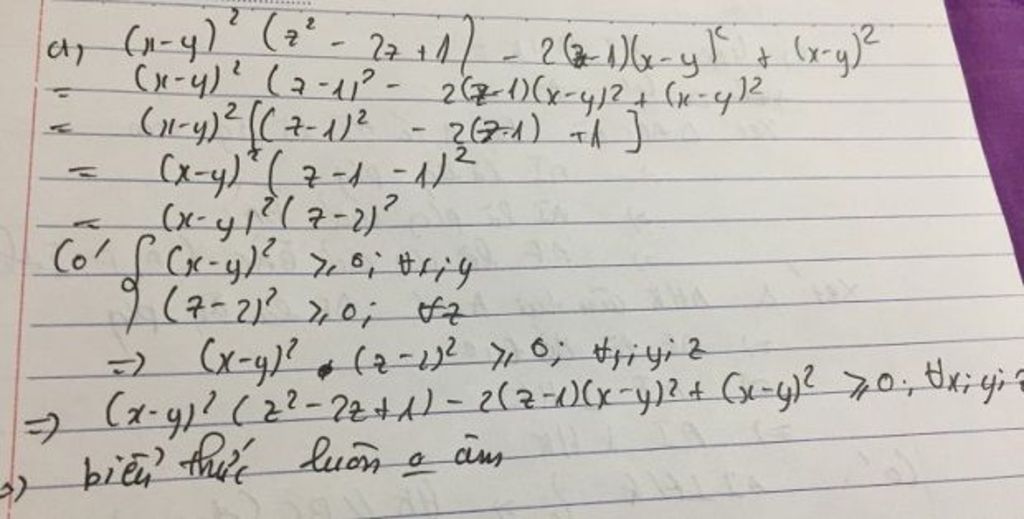 a, (x-y)² (z² - 2z + 1) - 2(z-1)(x-y)² + (x-y)²
= (x-y)² (z-1)² - 2(z-1)(x-y)² + (x-y)²
= (x-y)² [(z-1)² - 2(z-1) + 1]
= (x-y)² (z-1-1)²
= (x-y)² (z-2)²
Có { (x-y)² ≥ 0; ∀x;y
(z-2)² ≥ 0; ∀z
=> (x-y)² . (z-2)² ≥ 0; ∀x;y;z
=> (x-y)² (z² - 2z + 1) - 2(z-1)(x-y)² + (x-y)² ≥ 0; ∀x;y;z
=> biểu thức luôn o âm